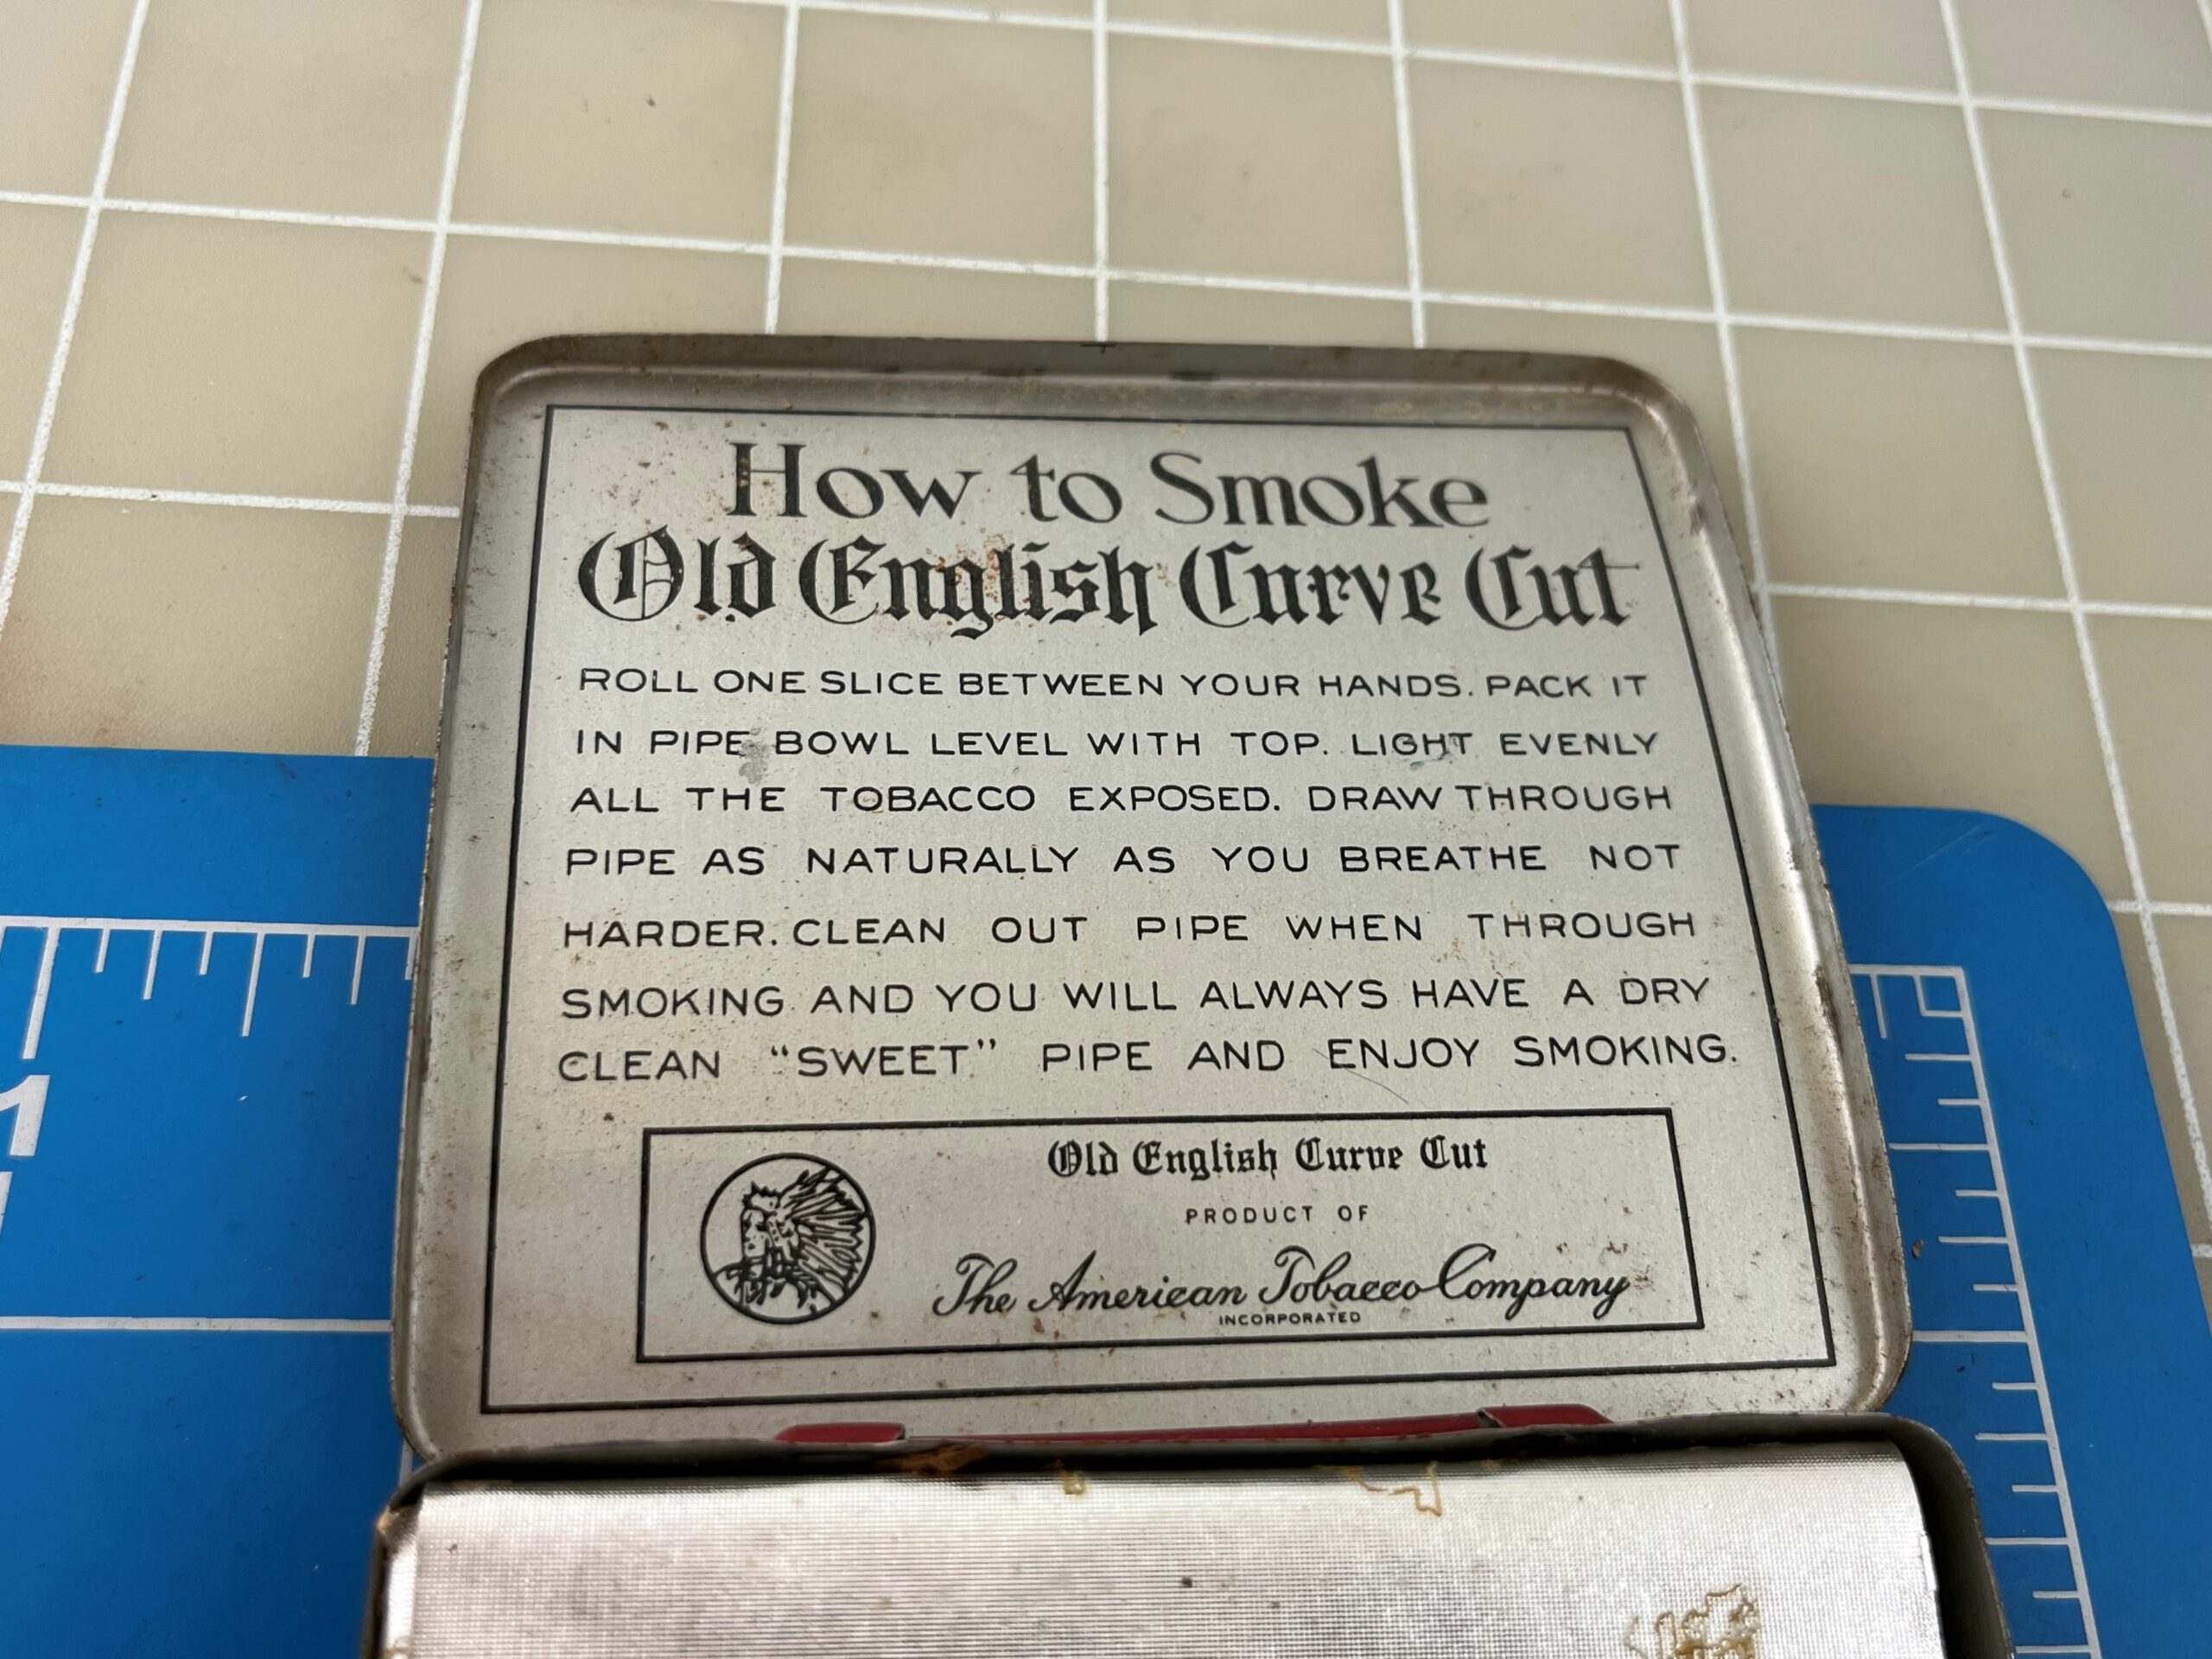 How to Smoke
Old English Curve Cut
ROLL ONE SLICE BETWEEN YOUR HANDS. PACK IT
IN PIPE BOWL LEVEL WITH TOP. LIGHT EVENLY
ALL THE TOBACCO EXPOSED. DRAW THROUGH
PIPE AS NATURALLY AS YOU BREATHE NOT
HARDER. CLEAN OUT PIPE WHEN THROUGH
SMOKING AND YOU WILL ALWAYS HAVE A DRY
CLEAN “SWEET” PIPE AND ENJOY SMOKING.
Old English Curve Cut
PRODUCT OF
The American Tobacco Company
INCORPORATED
1